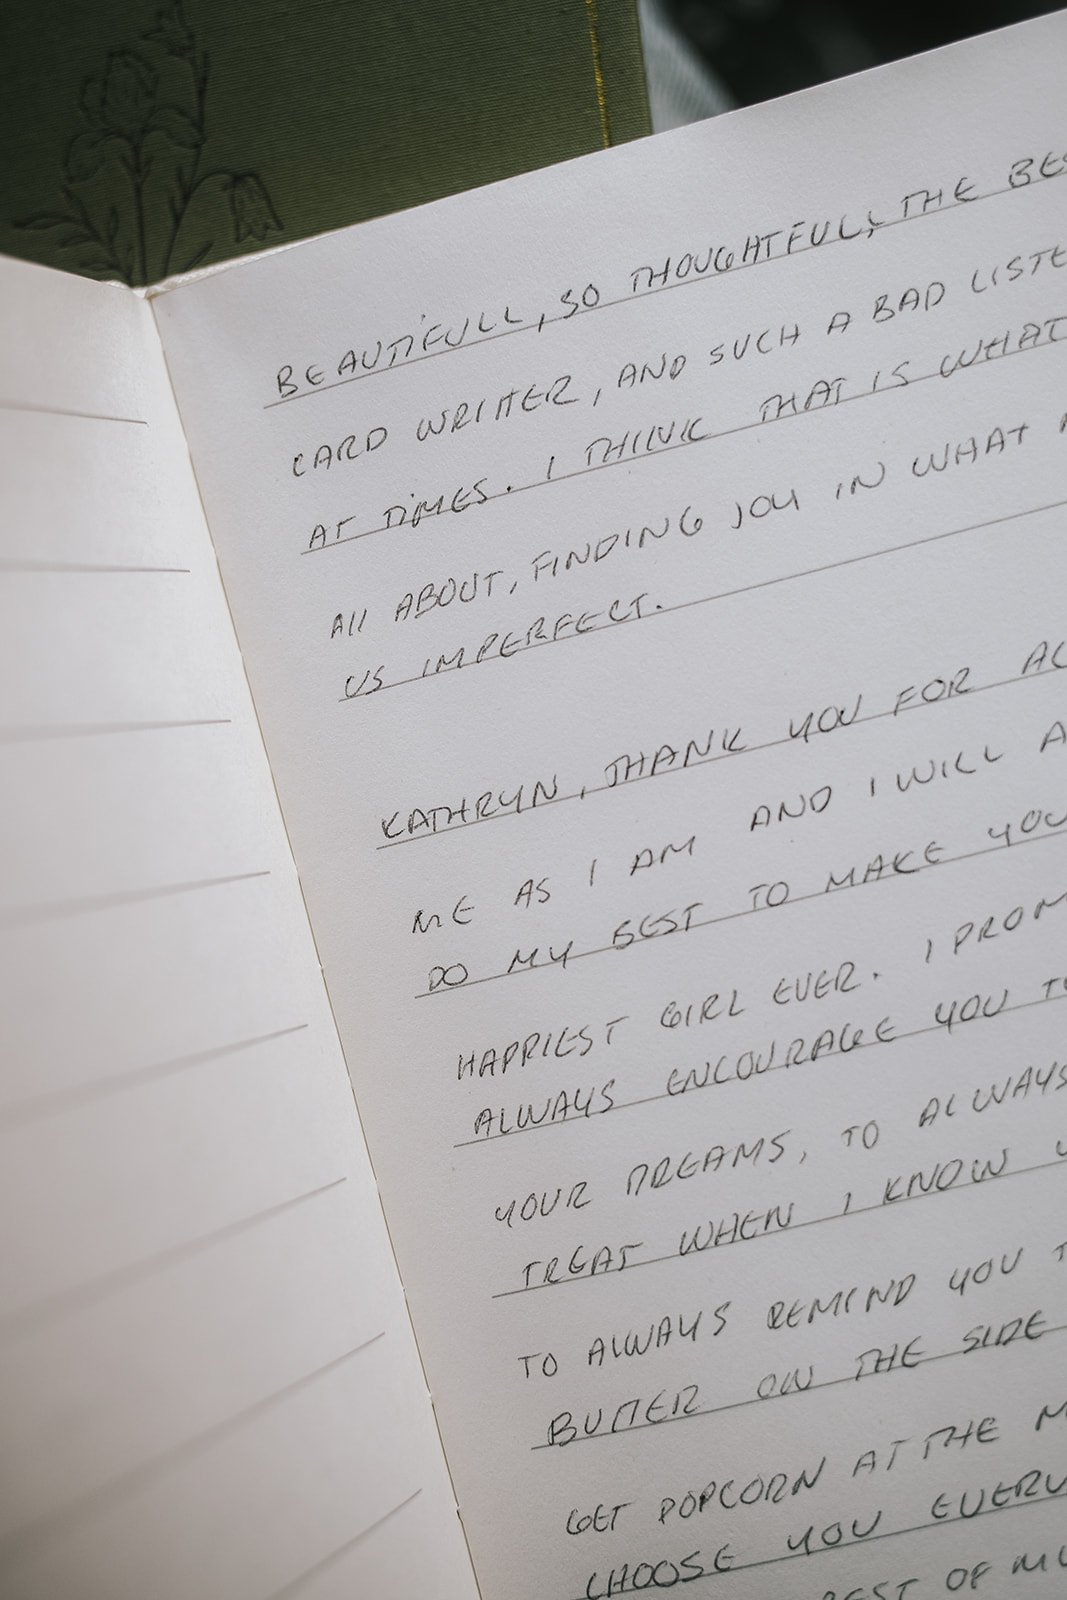 BEAUTIFULL, SO THOUGHTFULL, THE
CARD WRITTER, AND SUCH A BAD
AT TIMES. I THINK THAT IS WHAT
All ABOUT, FINDING JOY IN WHAT
US IMPERFECT.
KATHRYN, THANK YOU FOR
ME AS I AM AND I WILL
DO MY BEST TO MAKE YOU
HAPPIEST GIRL EVER. I
ALWAYS ENCOURAGE YOU
YOUR DREAMS, TO ALWAYS
TREAT WHEN I KNOW
TO ALWAYS REMIND YOU
BUTTER ON THE SIDE
GET POPCORN AT THE
CHOOSE YOU
OF